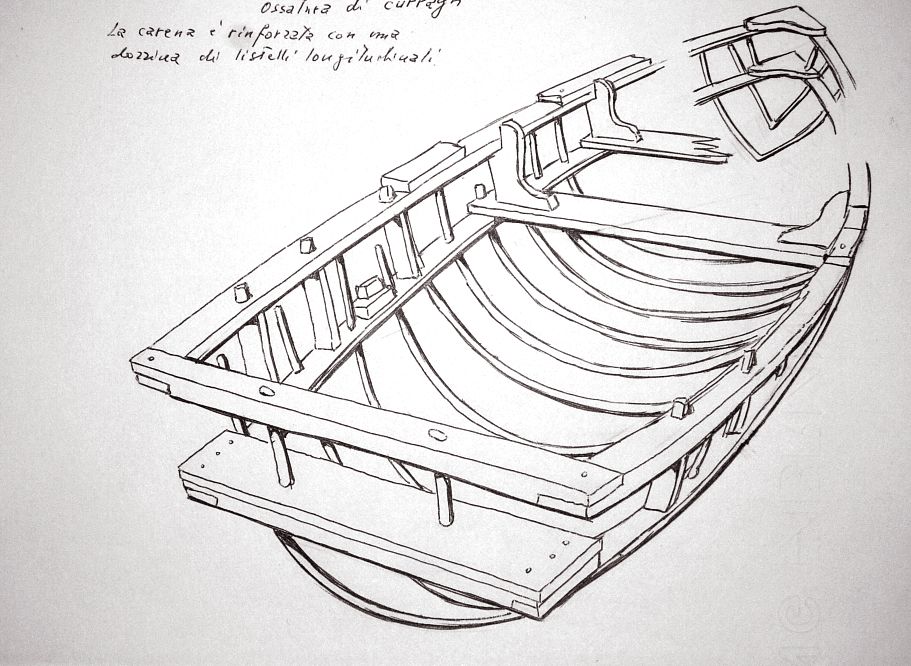 Ossatura di curragh
La carena è rinforzata con una
dozzina di listelli longitudinali.